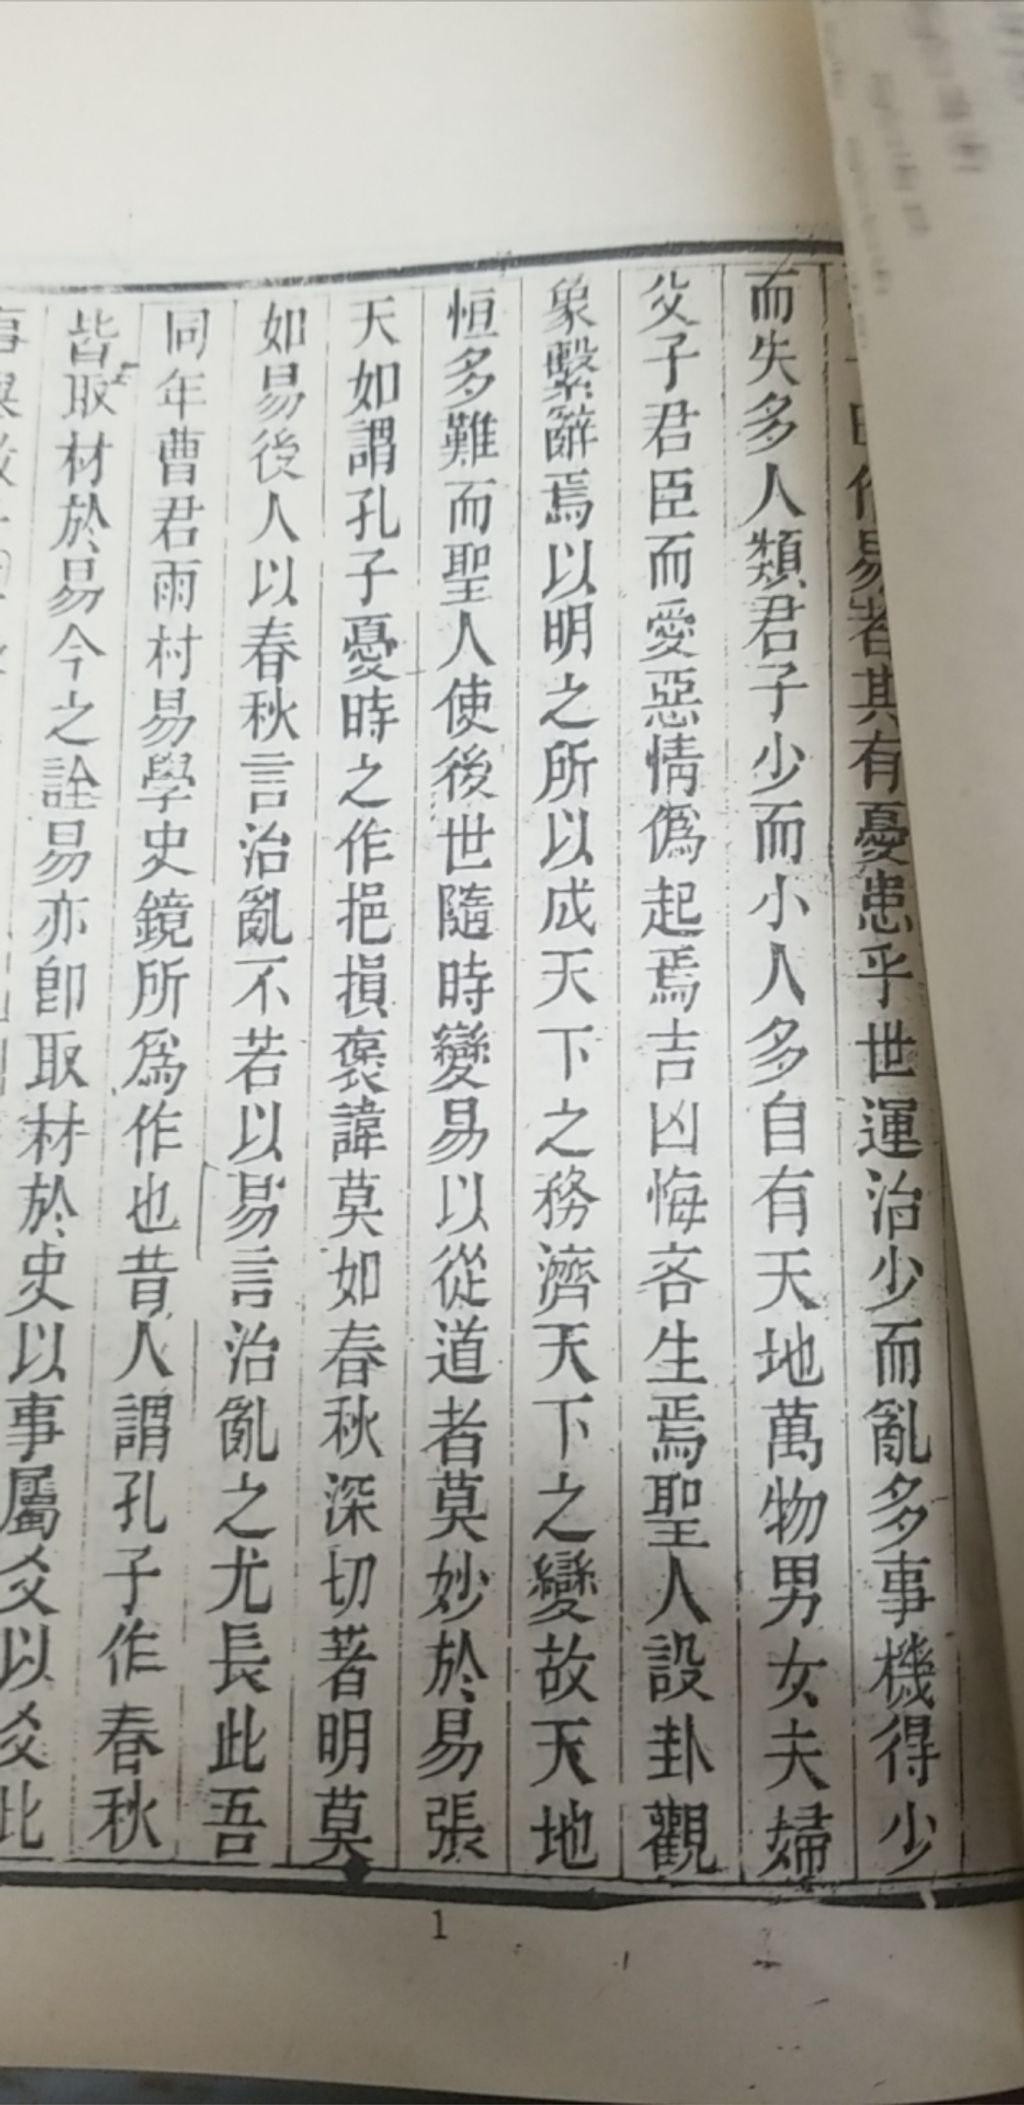 曰作易者其有憂患乎世運治少而亂多事機得少
而失多人類君子少而小人多自有天地萬物男女夫婦
父子君臣而愛惡情僞起焉吉凶悔吝生焉聖人設卦觀
象繫辭焉以明之所以成天下之務濟天下之變故天地
恒多難而聖人使後世隨時變易以從道者莫妙於易張
天如謂孔子憂時之作挹損褒諱莫如春秋深切著明莫
如易後人以春秋言治亂不若以易言治亂之尤長此吾
同年曹君雨村易學史鏡所爲作也昔人謂孔子作春秋
皆取材於易今之詮易亦卽取材於史以事屬爻以爻此
1